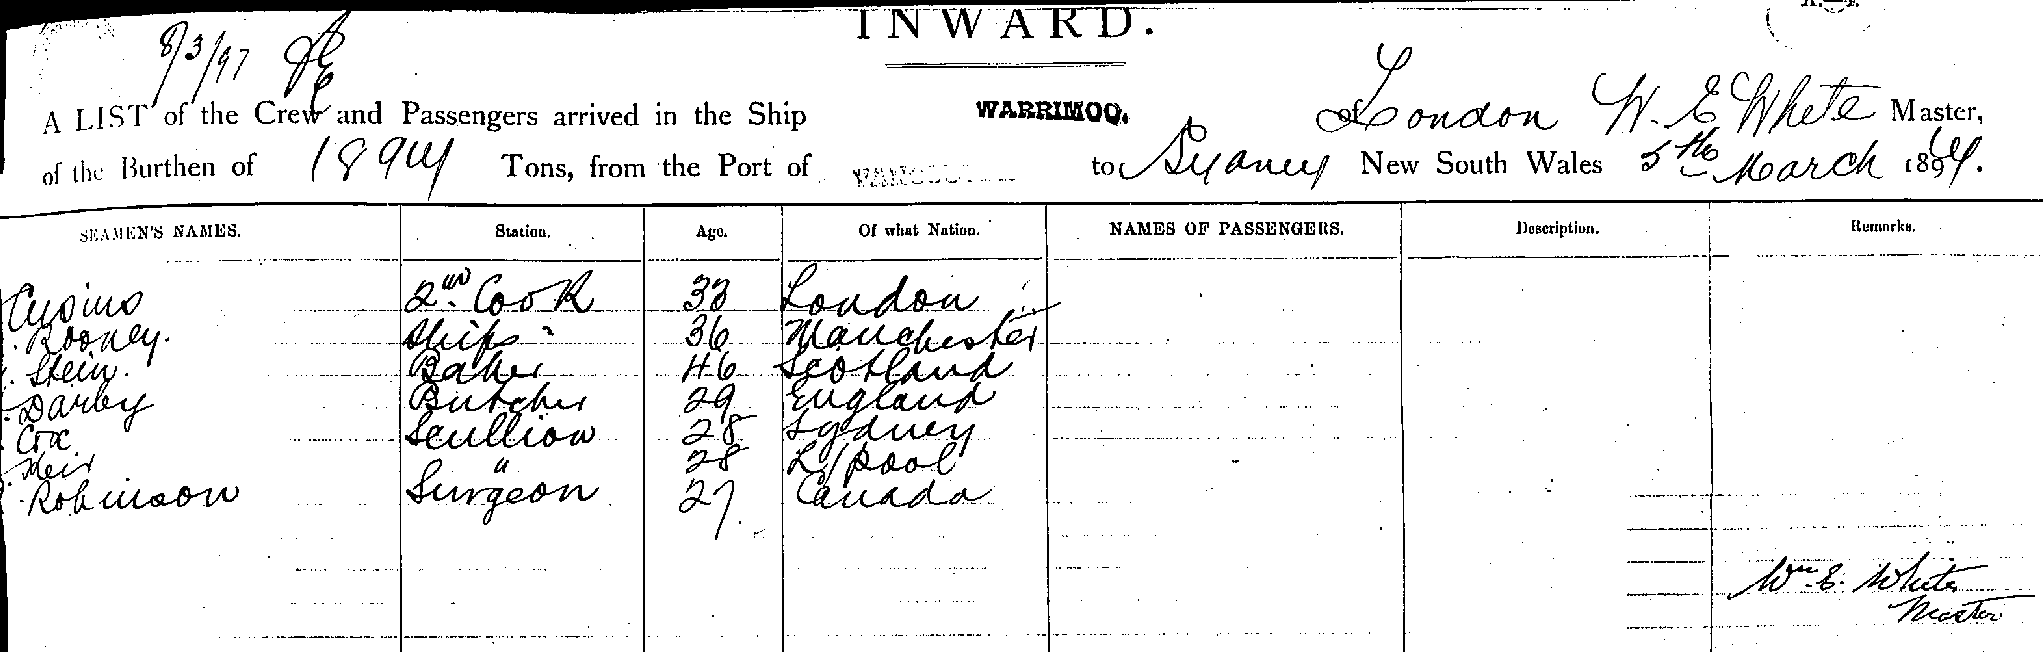 INWARD.
8/3/97
A LIST of the Crew and Passengers arrived in the Ship WARRIMOO. of London W. E White Master,
of the Burthen of Tons, from the Port of to Sydney New South Wales 5th March
SEAMEN'S NAMES. Station. Age. Of what Nation. NAMES OF PASSENGERS. Description. Remarks.
2nd Cook 33 London
Rooney. Ships " 36 Manchester
Stein. Baker 46 Scotland
Darby Butcher 29 England
Cox Scullion 28 Sydney
" 28 L/pool
Robinson Surgeon 27 Canada
Wm E. White
Master